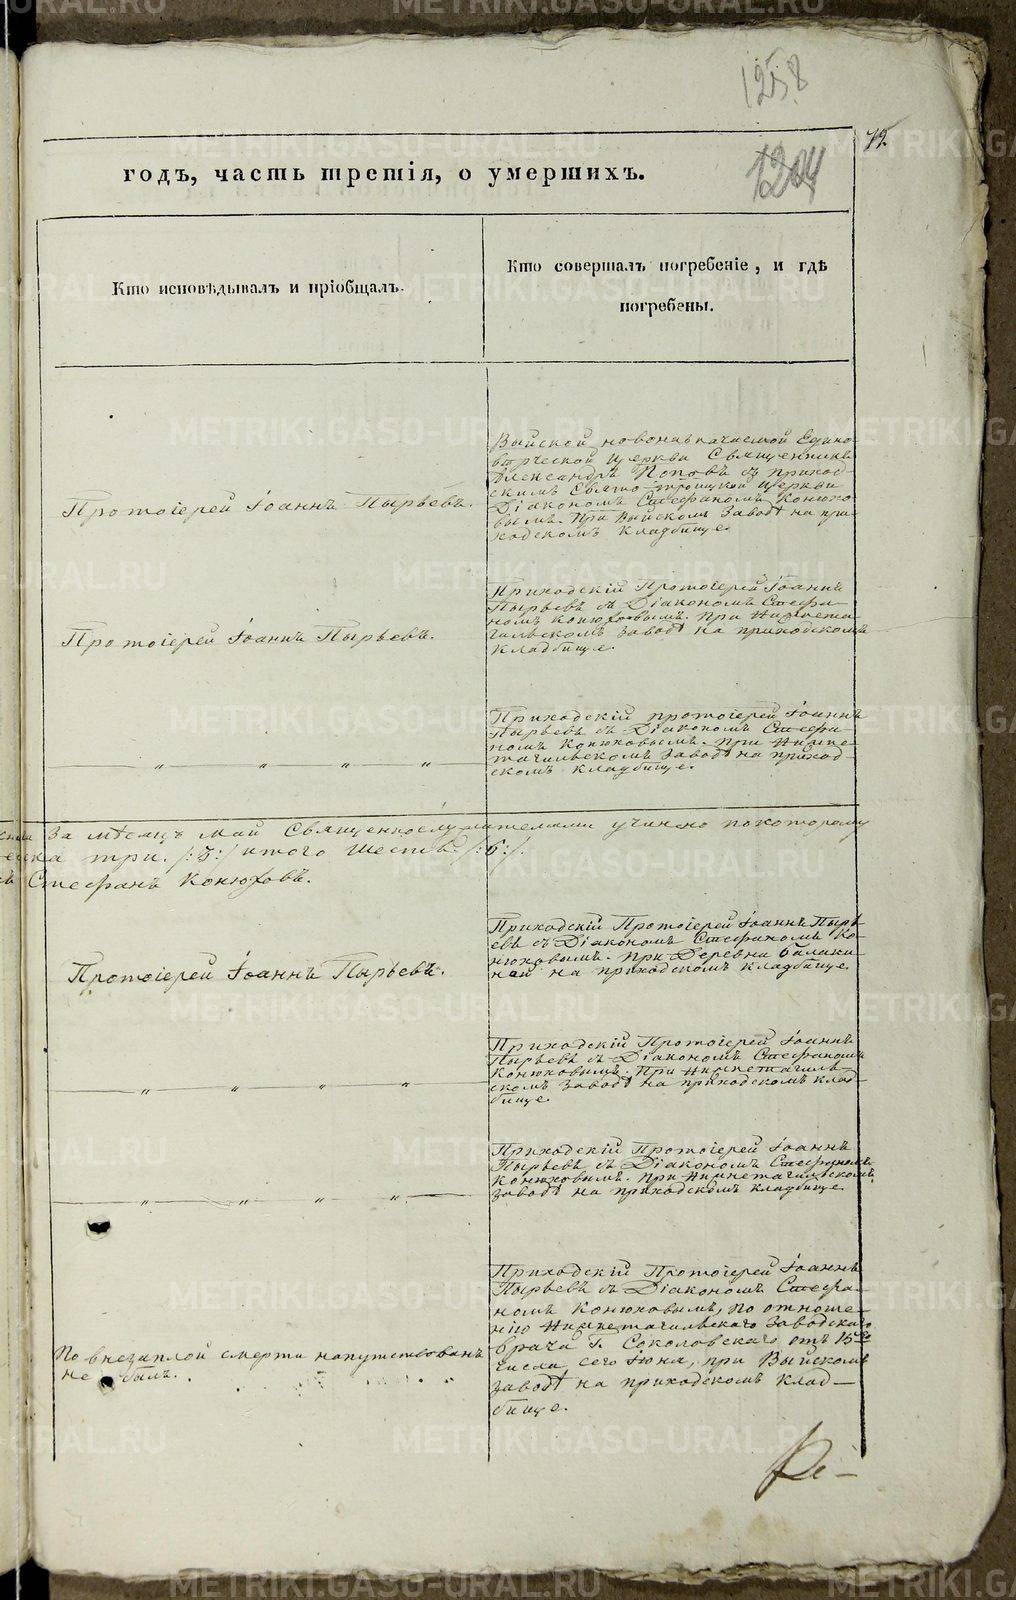 1258
72
1204
годъ, часть третія, о умершихъ.
Кто исповѣдывалъ и пріобщалъ.
Кто совершалъ погребеніе, и гдѣ
погребены.
Протоіерей Іоаннъ Пырьевъ.
Выйской новоназначаемой Едино
вѣрческой церкви Священникъ
Александръ Поповъ съ приход-
скимъ Свято-троицкой церкви
Діакономъ Стефаномъ Конюхо
вымъ. При Выйскомъ Заводѣ на при
ходскомъ кладбище.
Протоіерей Іоаннъ Пырьевъ.
Приходскій Протоіерей Іоаннъ
Пырьевъ съ Діакономъ Стефа-
номъ Конюховымъ. При Нижнета
гильскомъ заводѣ на приходскомъ
кладбище.
— „ — „ — „ — „ —
Приходскій протоіерей Іоаннъ
Пырьевъ съ Діакономъ Стефа-
номъ Конюховымъ. При Нижне
тагильскомъ Заводѣ на приход-
скомъ кладбище.
За мѣсяцъ Май Священнослужителями учинено по которому
три. /:3:/ итого шесть. /:6:/.
Стефанъ Конюховъ.
Протоіерей Іоаннъ Пырьевъ.
Приходскій Протоіерей Іоаннъ Пырь
евъ съ Діакономъ Стефаномъ Ко-
нюховымъ. При Деревнѣ Балаки-
ной на приходскомъ кладбище.
— „ — „ — „ — „ —
Приходскій Протоіерей Іоаннъ
Пырьевъ съ Діакономъ Стефаномъ
Конюховымъ. При Нижнетагиль-
скомъ Заводѣ на приходскомъ клад-
бище.
— „ — „ — „ — „ —
Приходскій Протоіерей Іоаннъ
Пырьевъ съ Діакономъ Стефаномъ
Конюховымъ. При Нижнетагильскомъ
заводѣ на приходскомъ кладбище.
По внезапной смерти напутствованъ
не былъ.
Приходскій Протоіерей Іоаннъ
Пырьевъ съ Діакономъ Стефа-
номъ Конюховымъ, по отноше-
нію Нижнетагильскаго Заводскаго
врача Г. Соколовскаго отъ 15го
числа сего Іюня, при Выйскомъ
заводѣ на приходскомъ клад-
бище.